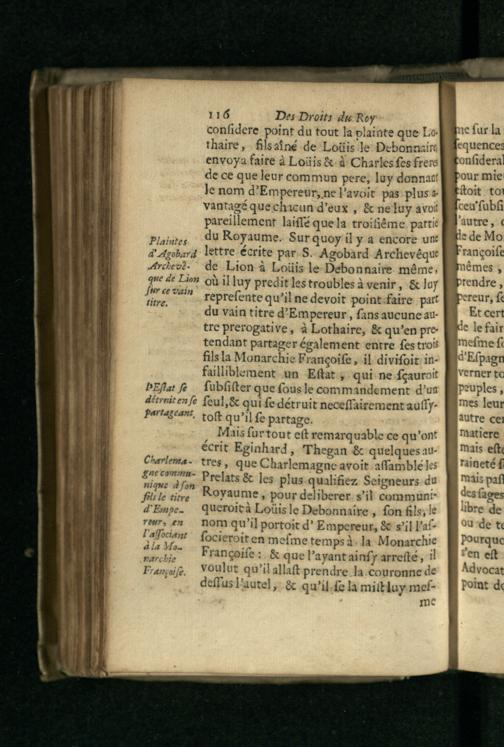 116 Des Droits du Roy
considere point du tout la plainte que Lo-
thaire, fils aîné de Loüis le Debonnaire
envoya faire à Loüis & à Charles ses freres
de ce que leur commun pere, luy donnant
le nom d'Empereur, ne l'avoit pas plus a-
vantagé que chacun d'eux, & ne luy avoit
pareillement laissé que la troisiéme partie
du Royaume. Sur quoy il y a encore une
lettre écrite par S. Agobard Archevêque
de Lion à Loüis le Debonnaire même,
où il luy predit les troubles à venir, & luy
represente qu'il ne devoit point faire part
du vain titre d'Empereur, sans aucune au-
tre prerogative, à Lothaire, & qu'en pre-
tendant partager également entre ses trois
fils la Monarchie Françoise, il divisoit in-
failliblement un Estat, qui ne sçauroit
subsister que sous le commandement d'un
seul, & qui se détruit necessairement aussy-
tost qu'il se partage.
Mais sur tout est remarquable ce qu'ont
écrit Eginhard, Thegan & quelques au-
tres, que Charlemagne avoit assamblé les
Prelats & les plus qualifiez Seigneurs du
Royaume, pour deliberer s'il communi-
queroit à Loüis le Debonnaire, son fils, le
nom qu'il portoit d'Empereur, & s'il l'as-
socieroit en mesme temps à la Monarchie
Françoise: & que l'ayant ainsy arresté, il
voulut qu'il allast prendre la couronne de
dessus l'autel, & qu'il se la mist luy mes-
me
Plaintes
d'Agobard
Archevê-
que de Lion
sur ce vain
titre.
L'Estat se
détruit en se
partageant.
Charlema-
gne commu-
nique à son
fils le titre
d'Empe-
reur, en
l'associant
à la Mo-
narchie
Françoise.
me sur la
sequences
considera
pour mie
estoit to
sceu subsi
l'autre,
de de Mo
Françoise
mêmes,
prendre,
pereur, se
Et cert
de le fair
mesme so
d'Espagn
verner to
peuples,
mes leur
autre cer
matiere
mais esto
raineté s
mais pass
des sages
libre de
ou de to
pourquo
s'en est
Advocat
point de